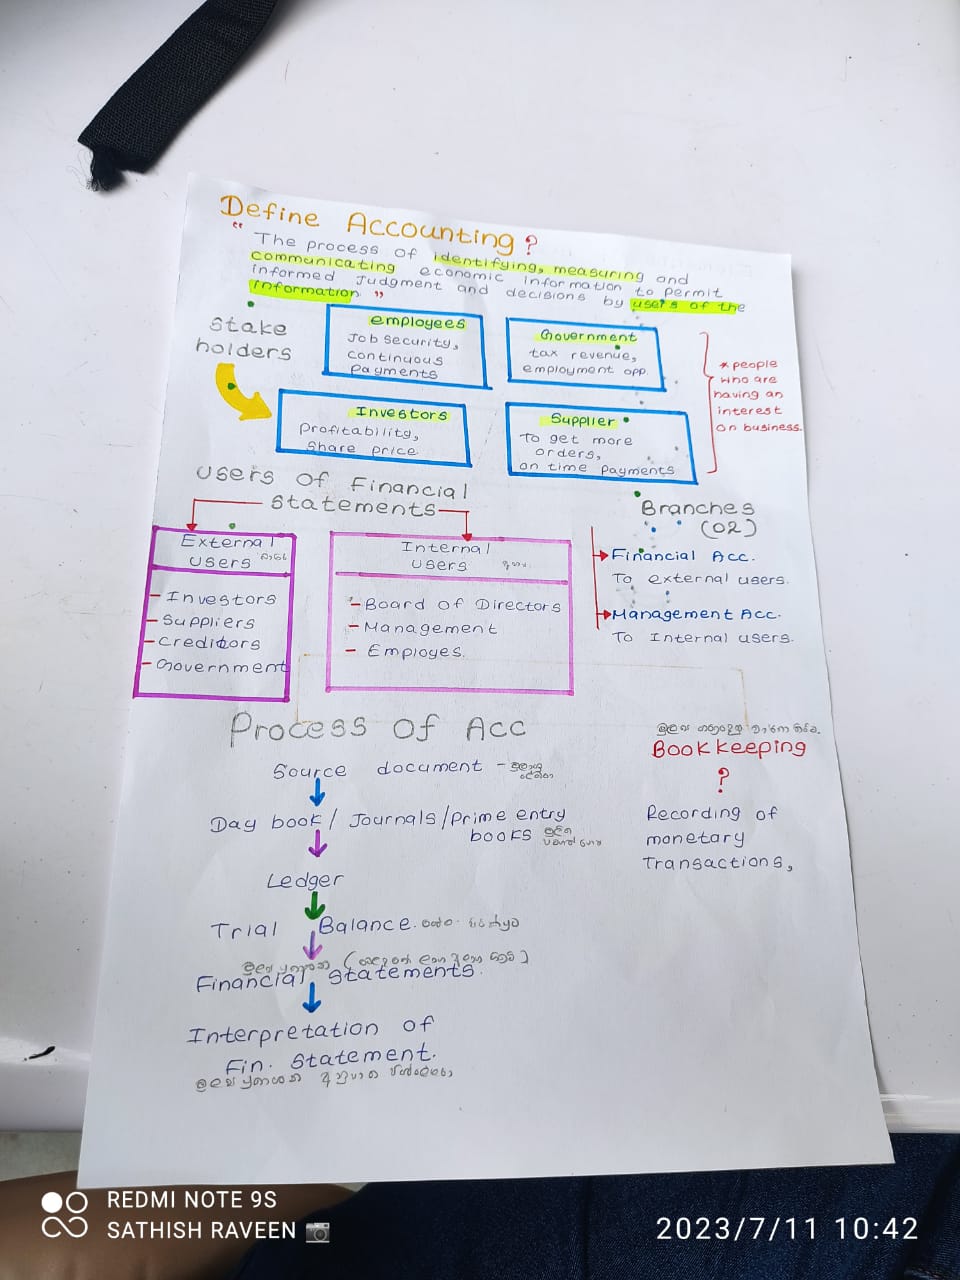 Define Accounting?
" The process of identifying, measuring and
communicating economic information to permit
informed judgment and decisions by users of the
Information. "
Stake
holders
employees
Job security,
continuous
payments
Government
tax revenue,
employment opp.
Investors
Profitability,
Share price.
Supplier
To get more
orders,
on time payments
* people
who are
having an
interest
on business.
Users Of Financial
Statements
External
Users
- Investors
- Suppliers
- Creditors
- Government
Internal
Users
- Board of Directors
- Management
- Employes.
Branches
(02)
Financial Acc.
To external users.
Management Acc.
To Internal users.
Process Of Acc
Source document -
Day book / Journals / Prime entry
books
Ledger
Trial Balance.
Financial Statements.
Interpretation of
Fin. Statement.
Book keeping
?
Recording of
monetary
Transactions,
REDMI NOTE 9S
SATHISH RAVEEN
2023/7/11 10:42